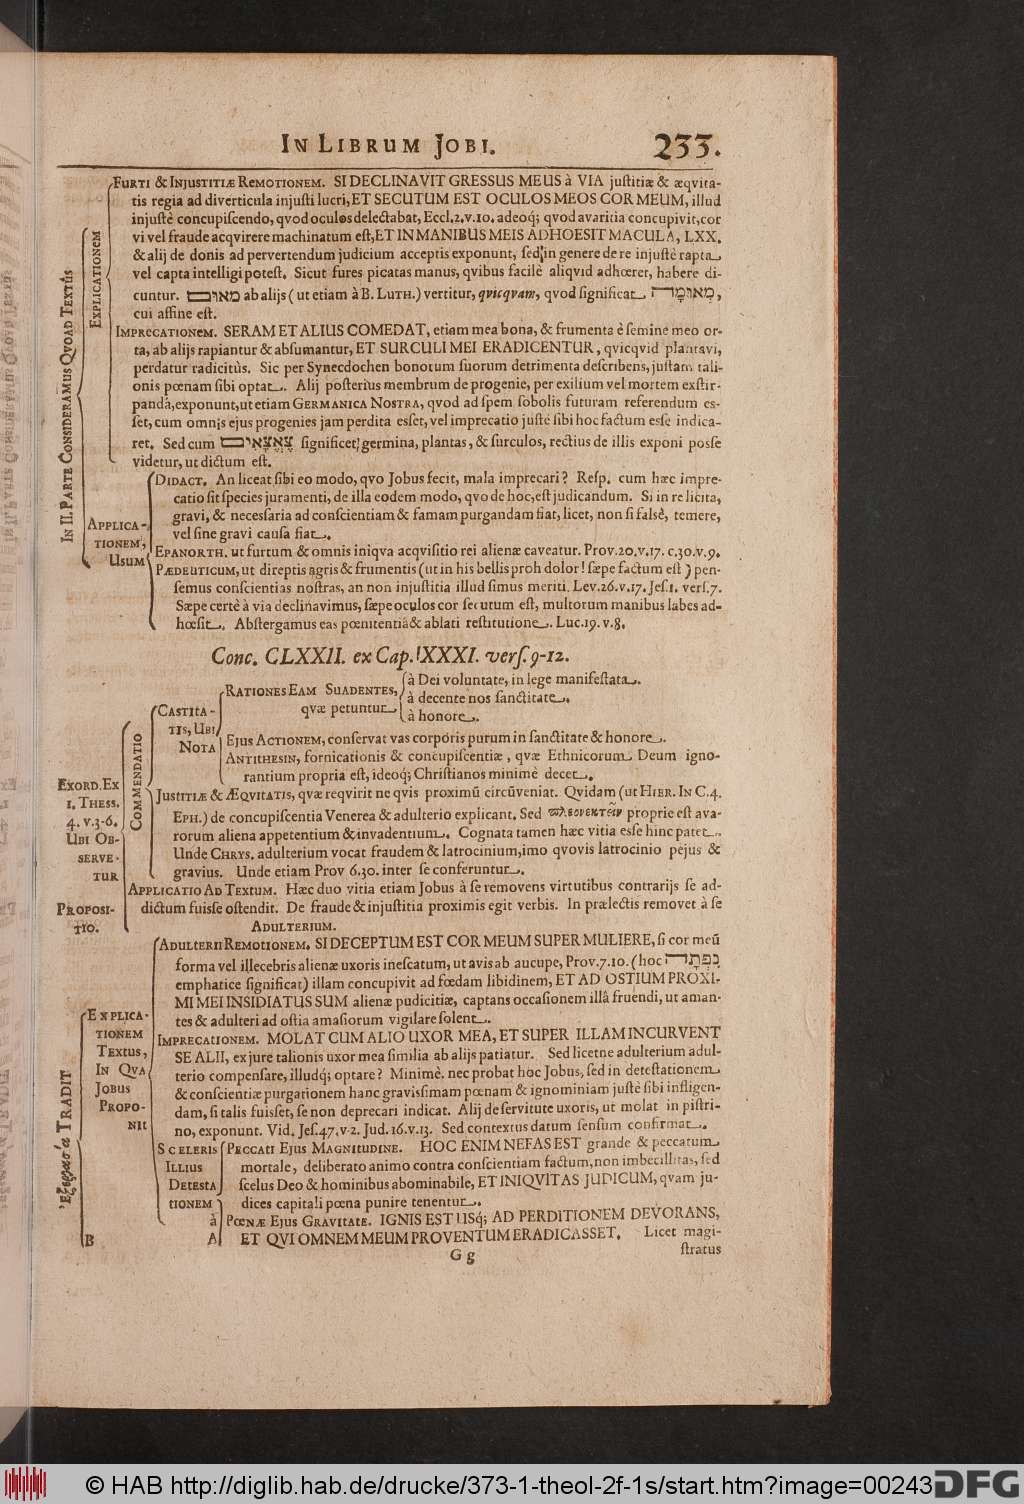 IN LIBRUM JOBI. 233.
IN II. PARTE CONSIDERAMUS QVOAD TEXTÚS
EXPLICATIONEM
FURTI & INJUSTITIÆ REMOTIONEM. SI DECLINAVIT GRESSUS MEUS à VIA juſtitiæ & æqvita-
tis regia ad diverticula injuſti lucri, ET SECUTUM EST OCULOS MEOS COR MEUM, illud
injuſtè concupiſcendo, qvod oculos delectabat, Eccl. 2. v. 10. adeoq; qvod avaritia concupivit, cor
vi vel fraude acqvirere machinatum eſt, ET IN MANIBUS MEIS ADHOESIT MACULA, LXX.
& alij de donis ad pervertendum judicium acceptis exponunt, ſed in genere de re injuſtè rapta
vel capta intelligi poteſt. Sicut fures picatas manus, qvibus facilè aliqvid adhœret, habere di-
cuntur. מאום ab alijs (ut etiam à B. LUTH.) vertitur, qvicqvam, qvod ſignificat מְאוּמָה,
cui affine eſt.
IMPRECATIONEM. SERAM ET ALIUS COMEDAT, etiam mea bona, & frumenta è ſemine meo or-
ta, ab alijs rapiantur & abſumantur, ET SURCULI MEI ERADICENTUR, qvicqvid plantavi,
perdatur radicitùs. Sic per Synecdochen bonorum ſuorum detrimenta deſcribens, juſtam tali-
onis pœnam ſibi optat. Alij poſterius membrum de progenie, per exilium vel mortem exſtir-
pandâ, exponunt, ut etiam GERMANICA NOSTRA, qvod ad ſpem ſobolis futuram referendum eſ-
ſet, cum omnis ejus progenies jam perdita eſſet, vel imprecatio juſtè ſibi hoc factum eſſe indica-
ret. Sed cum צֶאֱצָאִים ſignificet germina, plantas, & ſurculos, rectius de illis exponi poſſe
videtur, ut dictum eſt.
APPLICA-
TIONEM,
USUM
DIDACT. An liceat ſibi eo modo, qvo Jobus fecit, mala imprecari? Reſp. cum hæc impre-
catio ſit ſpecies juramenti, de illa eodem modo, qvo de hoc, eſt judicandum. Si in re licita,
gravi, & neceſſaria ad conſcientiam & famam purgandam fiat, licet, non ſi falsè, temere,
vel ſine gravi cauſa fiat.
EPANORTH. ut furtum & omnis iniqva acqviſitio rei alienæ caveatur. Prov. 20. v. 17. c. 30. v. 9.
PÆDEUTICUM, ut direptis agris & frumentis (ut in his bellis proh dolor! ſæpe factum eſt) pen-
ſemus conſcientias noſtras, an non injuſtitia illud ſimus meriti. Lev. 26. v. 17. Jeſ. 1. verſ. 7.
Sæpe certè à via declinavimus, ſæpe oculos cor ſecutum eſt, multorum manibus labes ad-
hœſit. Abſtergamus eas pœnitentiâ & ablati reſtitutione. Luc. 19. v. 8.
Conc. CLXXII. ex Cap. XXXI. verſ. 9-12.
EXORD. EX
1. THESS.
4. v. 3-6.
UBI OB-
SERVE-
TUR
COMMENDATIO
CASTITA-
TIS, UBI
NOTA
RATIONES EAM SUADENTES,
qvæ petuntur
à Dei voluntate, in lege manifeſtata.
à decente nos ſanctitate.
à honore.
Ejus ACTIONEM, conſervat vas corporis purum in ſanctitate & honore.
ANTITHESIN, fornicationis & concupiſcentiæ, qvæ Ethnicorum Deum igno-
rantium propria eſt, ideoq; Chriſtianos minimè decet.
JUSTITIÆ & ÆQVITATIS, qvæ reqvirit ne qvis proximũ circũveniat. Qvidam (ut HIER. IN C. 4.
EPH.) de concupiſcentia Venerea & adulterio explicant. Sed πλεονεκτεῖν proprie eſt ava-
rorum aliena appetentium & invadentium. Cognata tamen hæc vitia eſſe hinc patet.
Unde CHRYS. adulterium vocat fraudem & latrocinium, imo qvovis latrocinio pejus &
gravius. Unde etiam Prov 6. 30. inter ſe conferuntur.
APPLICATIO AD TEXTUM. Hæc duo vitia etiam Jobus à ſe removens virtutibus contrarijs ſe ad-
dictum fuiſſe oſtendit. De fraude & injuſtitia proximis egit verbis. In prælectis removet à ſe
PROPOSI-
TIO.
ADULTERIUM.
Ἐξεργασία TRADIT
EXPLICA-
TIONEM
TEXTUS,
IN QVA
JOBUS
PROPO-
NIT
ADULTERII REMOTIONEM. SI DECEPTUM EST COR MEUM SUPER MULIERE, ſi cor meũ
forma vel illecebris alienæ uxoris ineſcatum, ut avis ab aucupe, Prov. 7. 10. (hoc נִפְתָה
emphatice ſignificat) illam concupivit ad fœdam libidinem, ET AD OSTIUM PROXI-
MI MEI INSIDIATUS SUM alienæ pudicitiæ, captans occaſionem illâ fruendi, ut aman-
tes & adulteri ad oſtia amaſiorum vigilare ſolent.
IMPRECATIONEM. MOLAT CUM ALIO UXOR MEA, ET SUPER ILLAM INCURVENT
SE ALII, ex jure talionis uxor mea ſimilia ab alijs patiatur. Sed licetne adulterium adul-
terio compenſare, illudq; optare? Minimè. nec probat hoc Jobus, ſed in deteſtationem
& conſcientiæ purgationem hanc graviſſimam pœnam & ignominiam juſtè ſibi infligen-
dam, ſi talis fuiſſet, ſe non deprecari indicat. Alij de ſervitute uxoris, ut molat in piſtri-
no, exponunt. Vid. Jeſ. 47. v. 2. Jud. 16. v. 13. Sed contextus datum ſenſum confirmat.
SCELERIS
ILLIUS
DETESTA
TIONEM
à
PECCATI EJUS MAGNITUDINE. HOC ENIM NEFAS EST grande & peccatum
mortale, deliberato animo contra conſcientiam factum, non imbecillitas, ſed
ſcelus Deo & hominibus abominabile, ET INIQVITAS JUDICUM, qvam ju-
dices capitali pœna punire tenentur.
PŒNÆ EJUS GRAVITATE. IGNIS EST USq; AD PERDITIONEM DEVORANS,
B A ET QVI OMNEM MEUM PROVENTUM ERADICASSET. Licet magi-
G g ſtratus
© HAB http://diglib.hab.de/drucke/373-1-theol-2f-1s/start.htm?image=00243 DFG